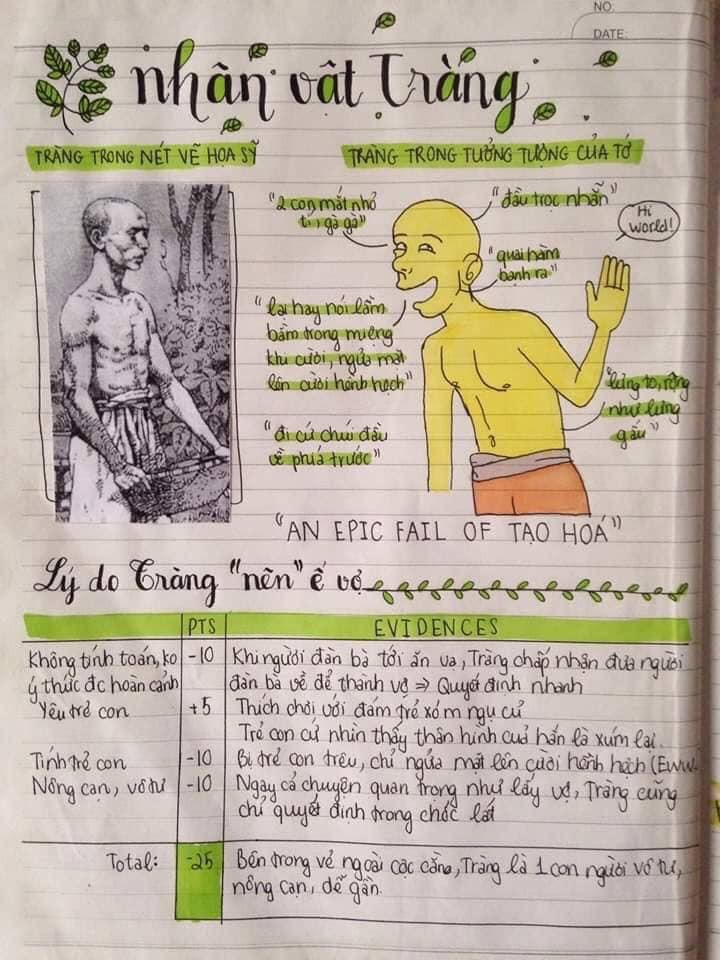 NO:
DATE:
nhân vật Tràng
TRÀNG TRONG NÉT VẼ HỌA SỸ
TRÀNG TRONG TƯỞNG TƯỢNG CỦA TỚ
"2 con mắt nhỏ
tí, gà gà"
"đầu trọc nhẵn"
Hi
World!
"quai hàm
bạnh ra"
"lại hay nói lầm
bầm trong miệng
khi cười, ngửa mặt
lên cười hềnh hệch"
"lưng to, rộng
như lưng
gấu"
"đi cứ chúi đầu
về phía trước"
"AN EPIC FAIL OF TẠO HOÁ"
Lý do Tràng "nên" ế vợ
PTS
EVIDENCES
Không tính toán, ko
ý thức đc hoàn cảnh
-10
Khi người đàn bà tới ăn vạ, Tràng chấp nhận đưa người
đàn bà về để thành vợ => Quyết định nhanh
Yêu trẻ con
+5
Thích chơi với đám trẻ xóm ngụ cư
Trẻ con cứ nhìn thấy thân hình của hắn là xúm lại.
Tính trẻ con
-10
Bị trẻ con trêu, chỉ ngửa mặt lên cười hềnh hệch (Eww
Nông cạn, vô tư
-10
Ngay cả chuyện quan trọng như lấy vợ, Tràng cũng
chỉ quyết định trong chốc lát
Total:
-25
Bên trong vẻ ngoài cọc cằn, Tràng là 1 con người vô tư,
nông cạn, dễ gần.